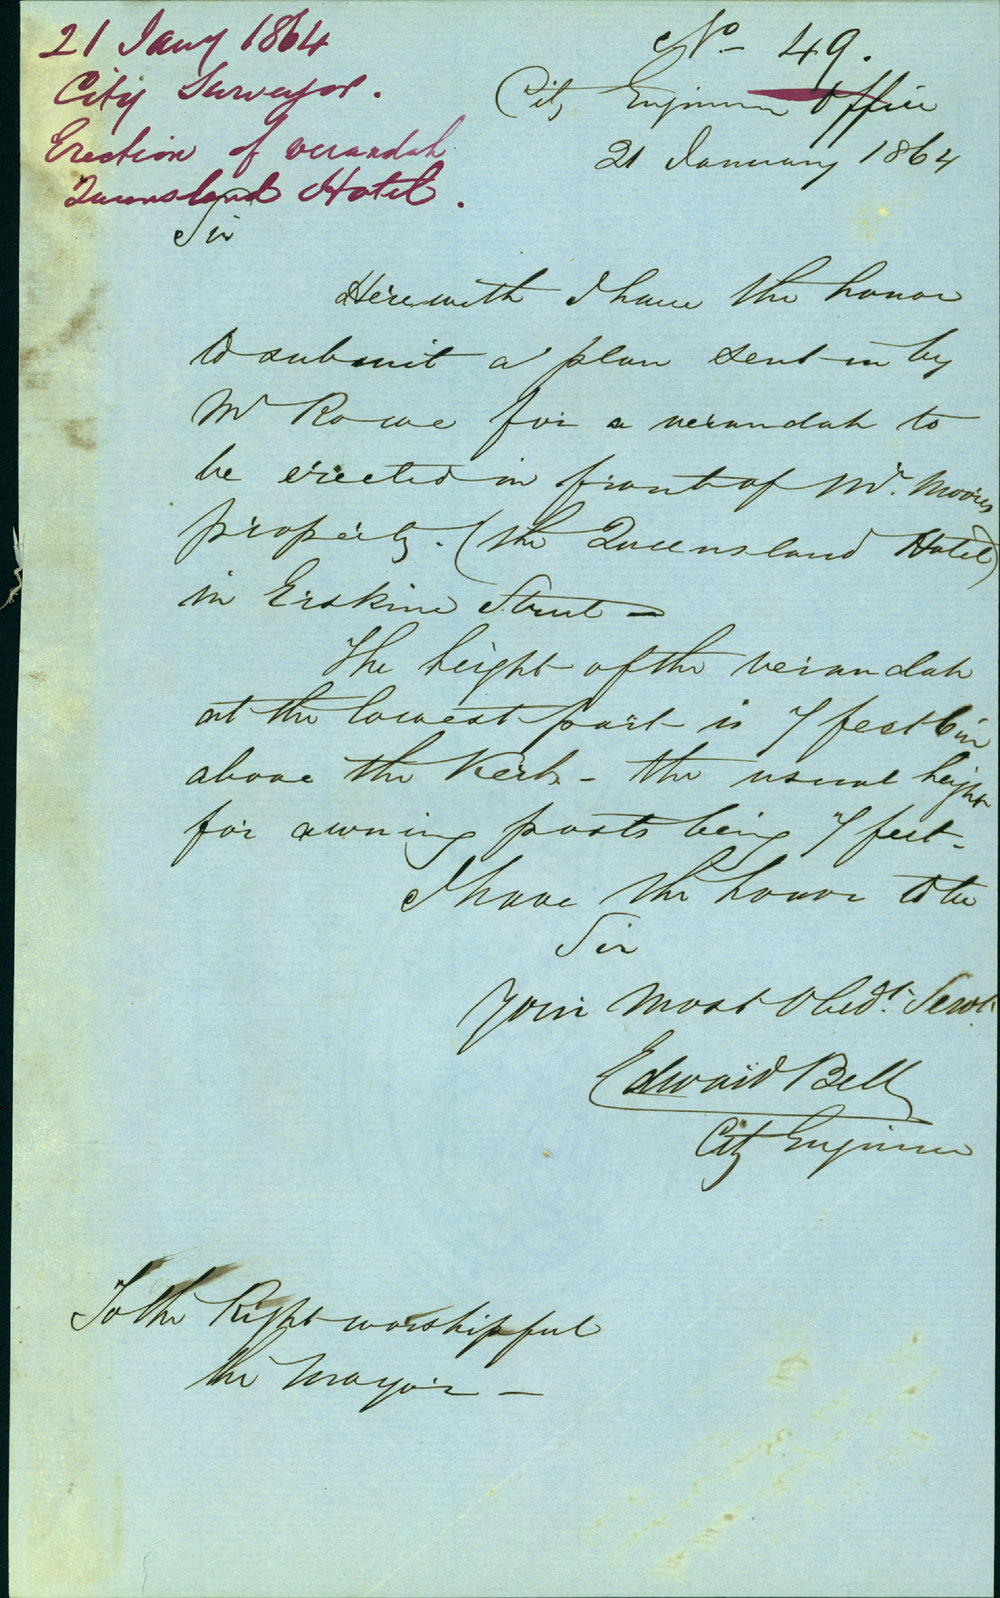 21 Jany 1864
City Surveyor.
Erection of verandah
Queensland Hotel.
No 49.
City Engineer Office
21 January 1864
Sir
Herewith I have the honor
to submit a plan sent in by
Mr Rowe for a verandah to
be erected in front of Mr. Moores
property. (the Queensland Hotel)
in Erskine Street –
The height of the verandah
at the lowest part is 7 feet 6 in
above the Kerb – the usual height
for awning posts being 7 feet –
I have the honor to be
Sir
Your Most Obedt. Servt.
Edward Bell
City Engineer
To the Right worshipful
the Mayor –